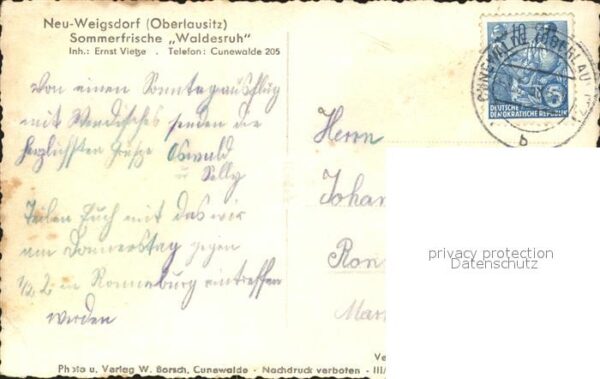 Neu-Weigsdorf (Oberlausitz)
Sommerfrische „Waldesruh"
Inh.: Ernst Vietze . Telefon: Cunewalde 205
Von einen Sonntagausflug
mit senden die
herzlichsten Grüße Oswald
u Selly
Teilen Euch mit das wir
am Donnerstag gegen
1/2 2 in Ronneburg eintreffen
werden
DEUTSCHE
DEMOKRATISCHE REPUBLIK
5
b
Herrn
Johan
Ron
Mar
privacy protection
Datenschutz
Ve
Photo u. Verlag W. Borsch, Cunewalde - Nachdruck verboten - III/